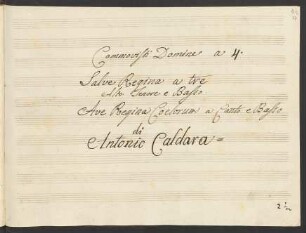 Commovisti Domine a 4.
Salve Regina a tre
Alto Tenore e Basso
Ave Regina Coelorum a Canto e Basso
di
Antonio Caldara =